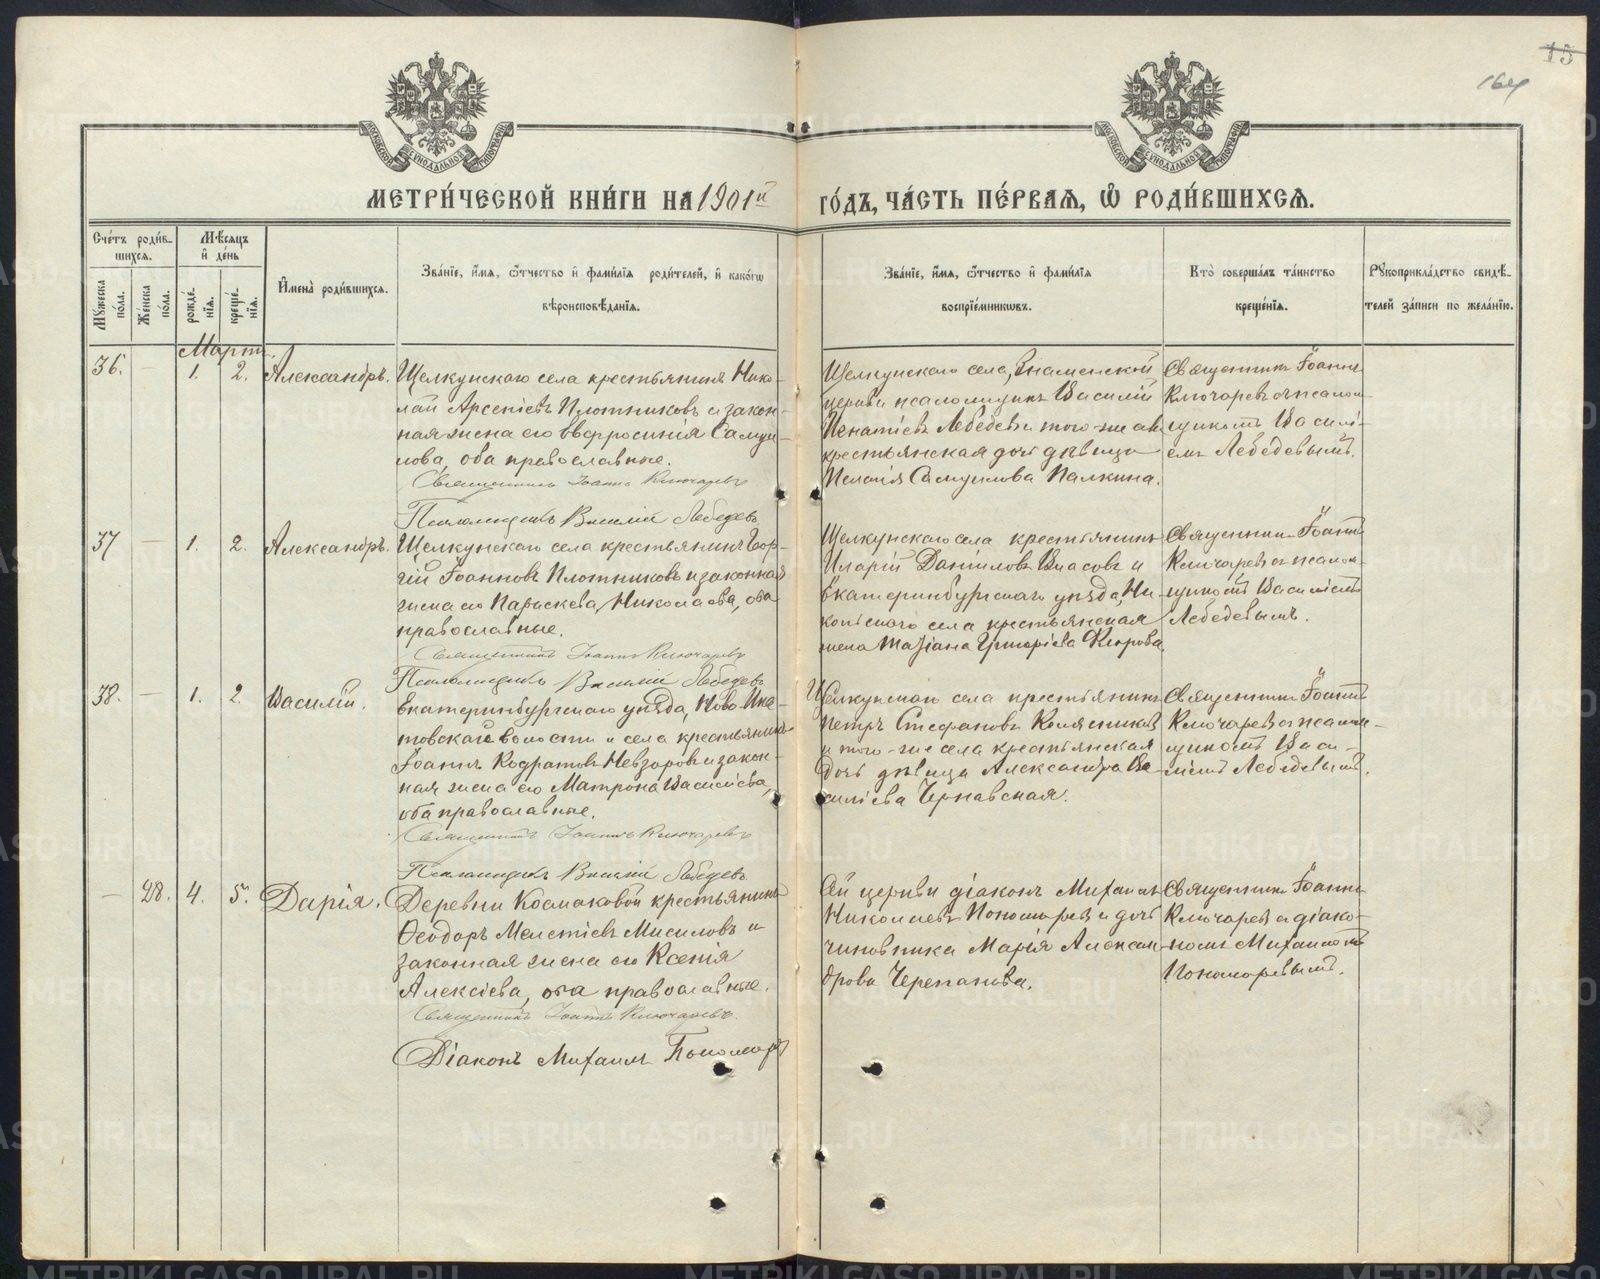 15
164
МОСКОВСКОЙ СѴНОДАЛЬНОЙ ТИПОГРАФІИ
МОСКОВСКОЙ СѴНОДАЛЬНОЙ ТИПОГРАФІИ
МЕТРИ́ЧЕСКОЙ КНИ́ГИ НА 1901й ГО́ДЪ, ЧА́СТЬ ПЕ́РВАѦ, Ѽ РОДИ́ВШИХСѦ.
Сче́тъ роди́в-
шихсѧ.
Мѣ́сѧцъ
и҆ де́нь
Мꙋ́жеска по́ла.
Же́нска по́ла.
рожде́-
нїѧ.
креще́-
нїѧ.
И҆мена̀ роди́вшихсѧ.
Зва́нїе, и҆́мѧ, ѻ҆́тчество и҆ фами́лїѧ роди́телей, и҆ како́гѡ
вѣроисповѣ́данїѧ.
Зва́нїе, и҆́мѧ, ѻ҆́тчество и҆ фами́лїѧ
воспрїе́мникѡвъ.
Кто̀ соверша́лъ та́инство
креще́нїѧ.
Рꙋкоприкла́дство свидѣ́-
телей за́писи по жела́нїю.
Мартъ.
36. — 1. 2. Александръ.
Щелкунскаго села крестьянинъ Нико-
лай Арсеніевъ Плотниковъ и закон-
ная жена его Евфросинія Самуи-
лова, оба православные.
Священникъ Іоаннъ Ключаревъ
Псаломщикъ Василій Лебедевъ
Щелкунскаго села, Знаменской
церкви псаломщикъ Василій
Игнатіевъ Лебедевъ и того-же села
крестьянская дочь дѣвица
Пелагія Самуилова Палкина.
Священникъ Іоаннъ
Ключаревъ съ псалом-
щикомъ Василі-
емъ Лебедевымъ.
37 — 1. 2. Александръ.
Щелкунскаго села крестьянинъ Геор-
гій Іоанновъ Плотниковъ и законная
жена его Параскева Николаева, оба
православные.
Священникъ Іоаннъ Ключаревъ
Псаломщикъ Василій Лебедевъ
Щелкунскаго села крестьянинъ
Иларій Даніиловъ Власовъ и
Екатеринбургскаго уѣзда, Ни-
кольскаго села крестьянская
жена Татіана Григоріева
Священникъ Іоаннъ
Ключаревъ съ псалом-
щикомъ Василіемъ
Лебедевымъ.
38. — 1. 2. Василій.
Екатеринбургскаго уѣзда, Ново-Ипа-
товскаго волости и села крестьянинъ
Іоаннъ Кодратовъ Невзоровъ и закон-
ная жена его Матрона Василіева,
оба православные.
Священникъ Іоаннъ Ключаревъ
Псаломщикъ Василій Лебедевъ
Щелкунскаго села крестьянинъ
Петръ Стефановъ Колясниковъ
и того-же села крестьянская
дочь дѣвица Александра Ва-
силіева Чернавская.
Священникъ Іоаннъ
Ключаревъ съ псалом-
щикомъ Васи-
ліемъ Лебедевымъ.
— 28. 4. 5. Дарія.
Деревни Космаковой крестьянинъ
Ѳеодоръ Мелетіевъ Мисиловъ и
законная жена его Ксенія
Алексіева, оба православные.
Священникъ Іоаннъ Ключаревъ.
Діаконъ Михаилъ Пономаревъ
Сей церкви діаконъ Михаилъ
Николаевъ Пономаревъ и дочь
чиновника Марія Алексан-
дрова Черепанова.
Священникъ Іоаннъ
Ключаревъ съ діако-
номъ Михаиломъ
Пономаревымъ.
METRIKI.GASO-URAL.RU